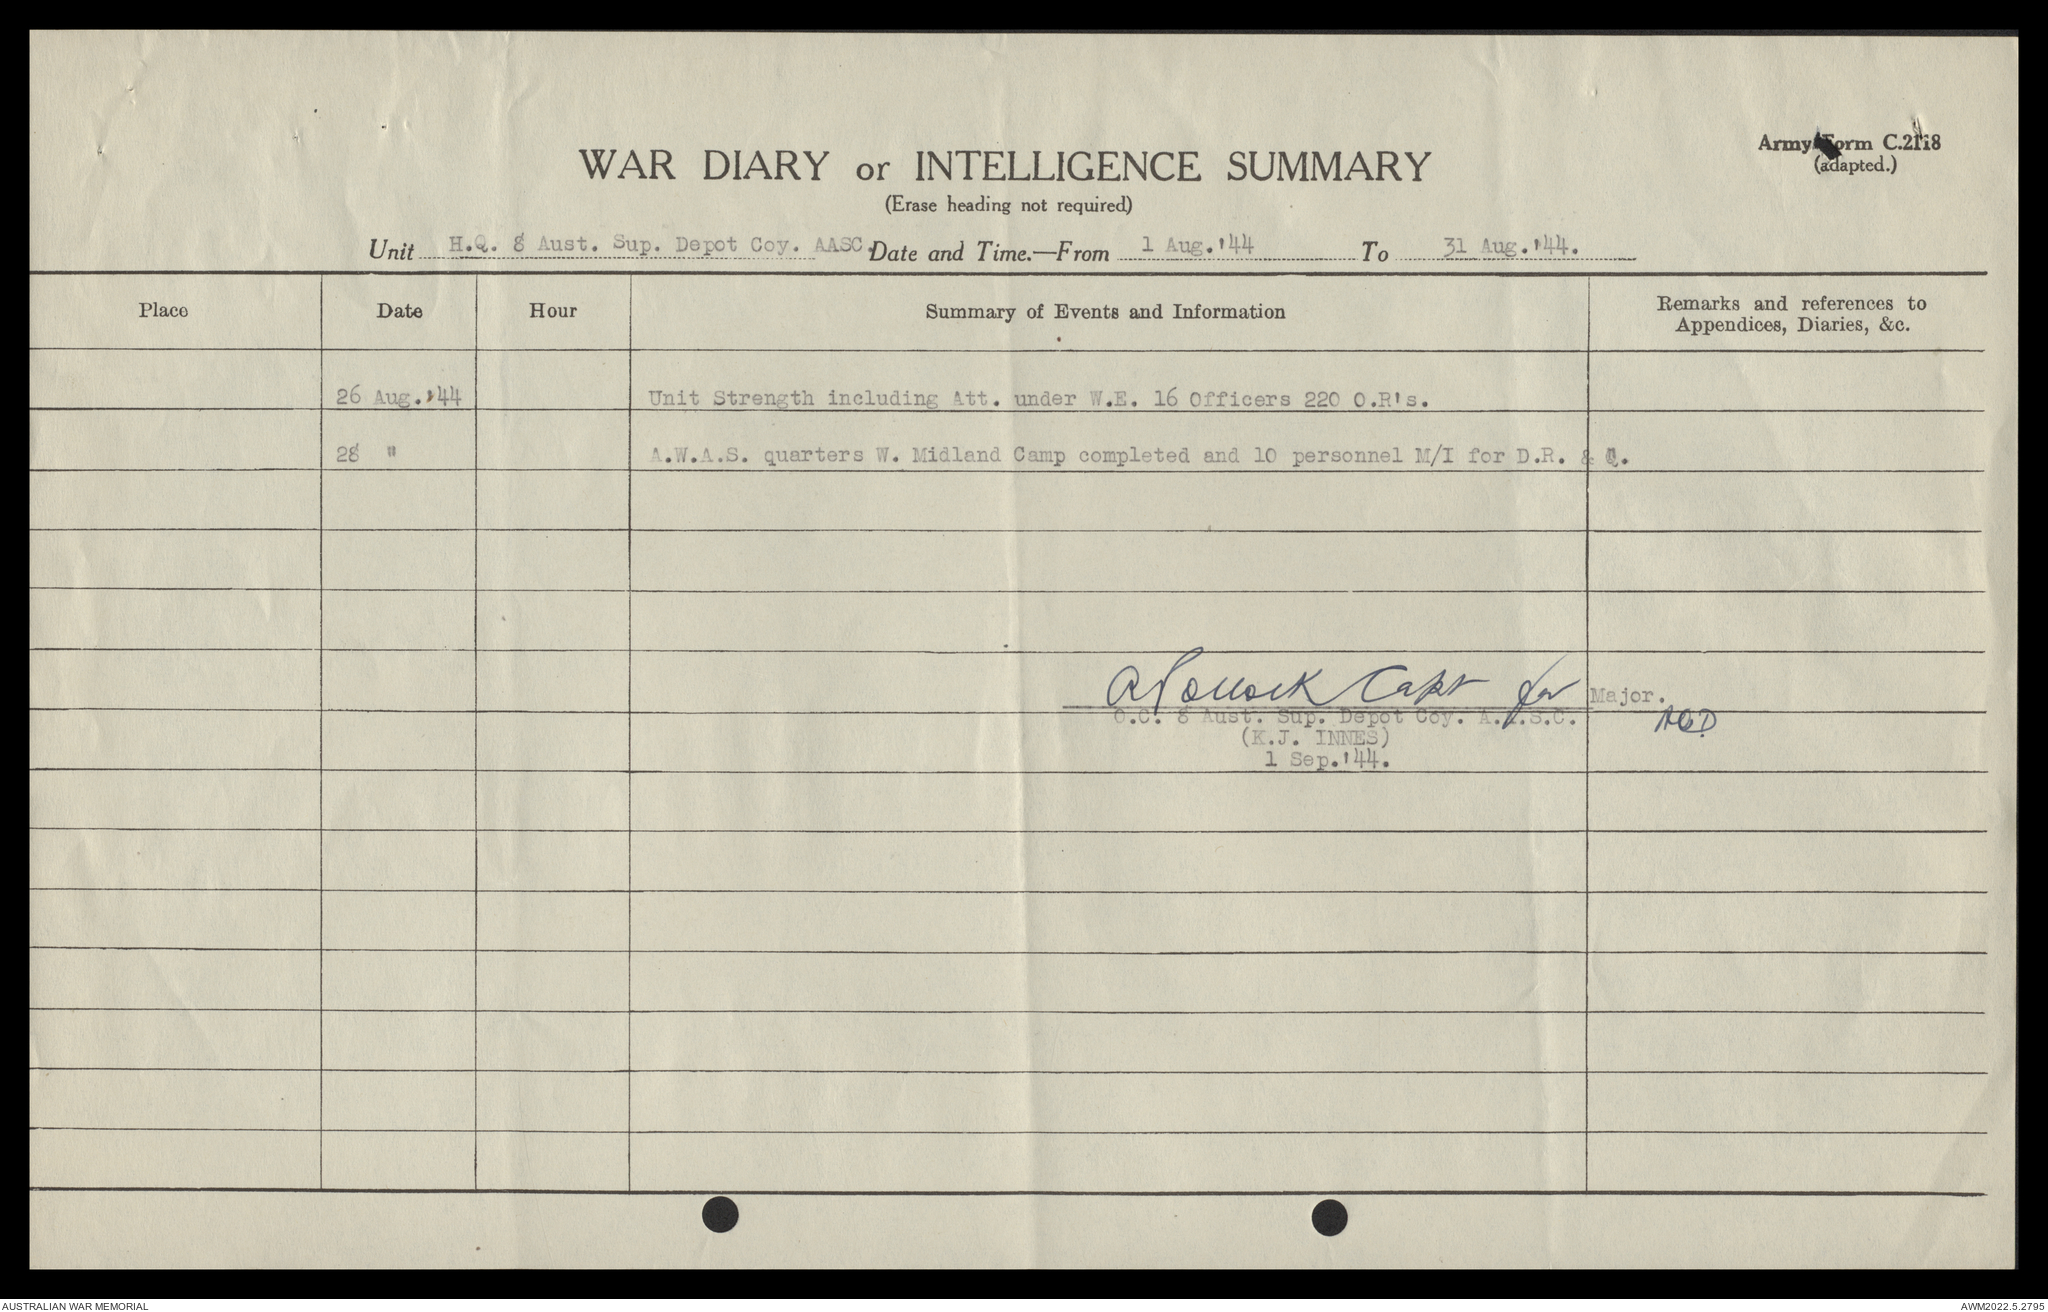 Army Form C.2118
(adapted.)
WAR DIARY or INTELLIGENCE SUMMARY
(Erase heading not required)
Unit H.Q. 8 Aust. Sup. Depot Coy. AASC. Date and Time.—From 1 Aug.'44 To 31 Aug.'44.
Place Date Hour Summary of Events and Information Remarks and references to
Appendices, Diaries, &c.
26 Aug.'44 Unit Strength including Att. under W.E. 16 Officers 220 O.R's.
28 " A.W.A.S. quarters W. Midland Camp completed and 10 personnel M/I for D.R. & Q.
Capt for Major.
O.C. 8 Aust. Sup. Depot Coy. A.A.S.C.
(K.J. INNES)
1 Sep.'44.
AUSTRALIAN WAR MEMORIAL AWM2022.5.2795